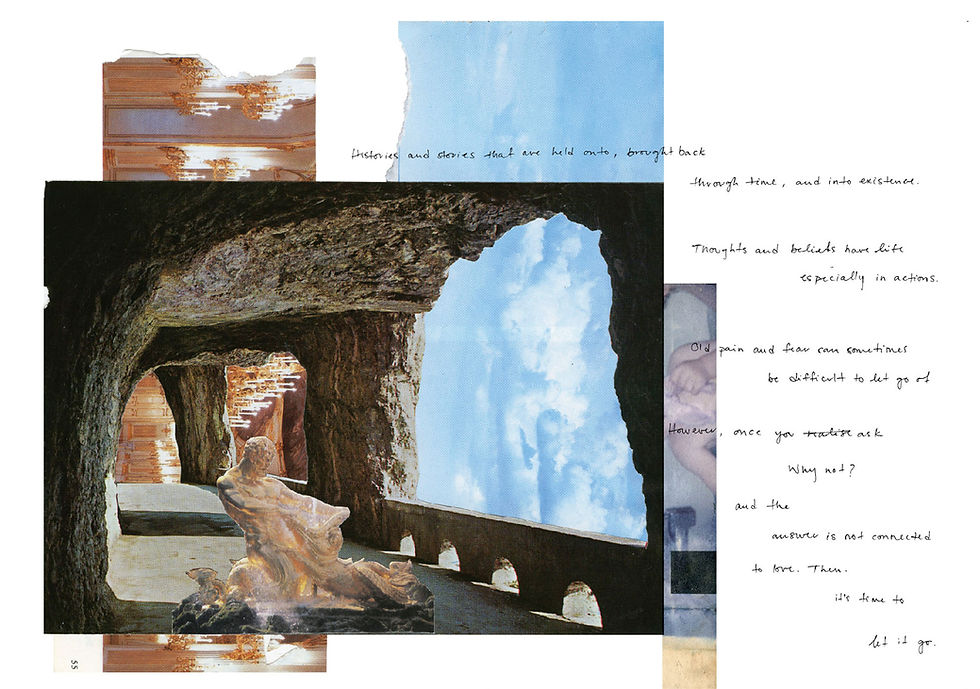 Histories and stories that are held onto, brought back
through time, and into existence.
Thoughts and beliefs have life
especially in actions.
Old pain and fear can sometimes
be difficult to let go of
However, once you realise ask
Why not?
and the
answer is not connected
to love. Then.
it's time to
let it go.
55